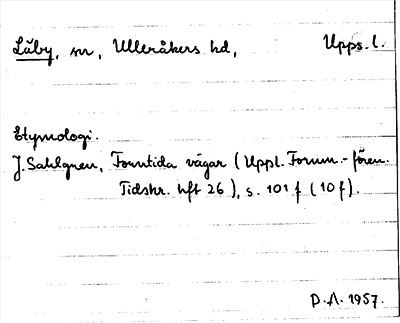 Låby, sn, Ulleråkers hd, Upps. l.
Etymologi.
J. Sahlgren, Forntida vägar (Uppl. Fornm.-fören.
Tidskr. hft 26), s. 101 f (10 f).
D. A. 1957.